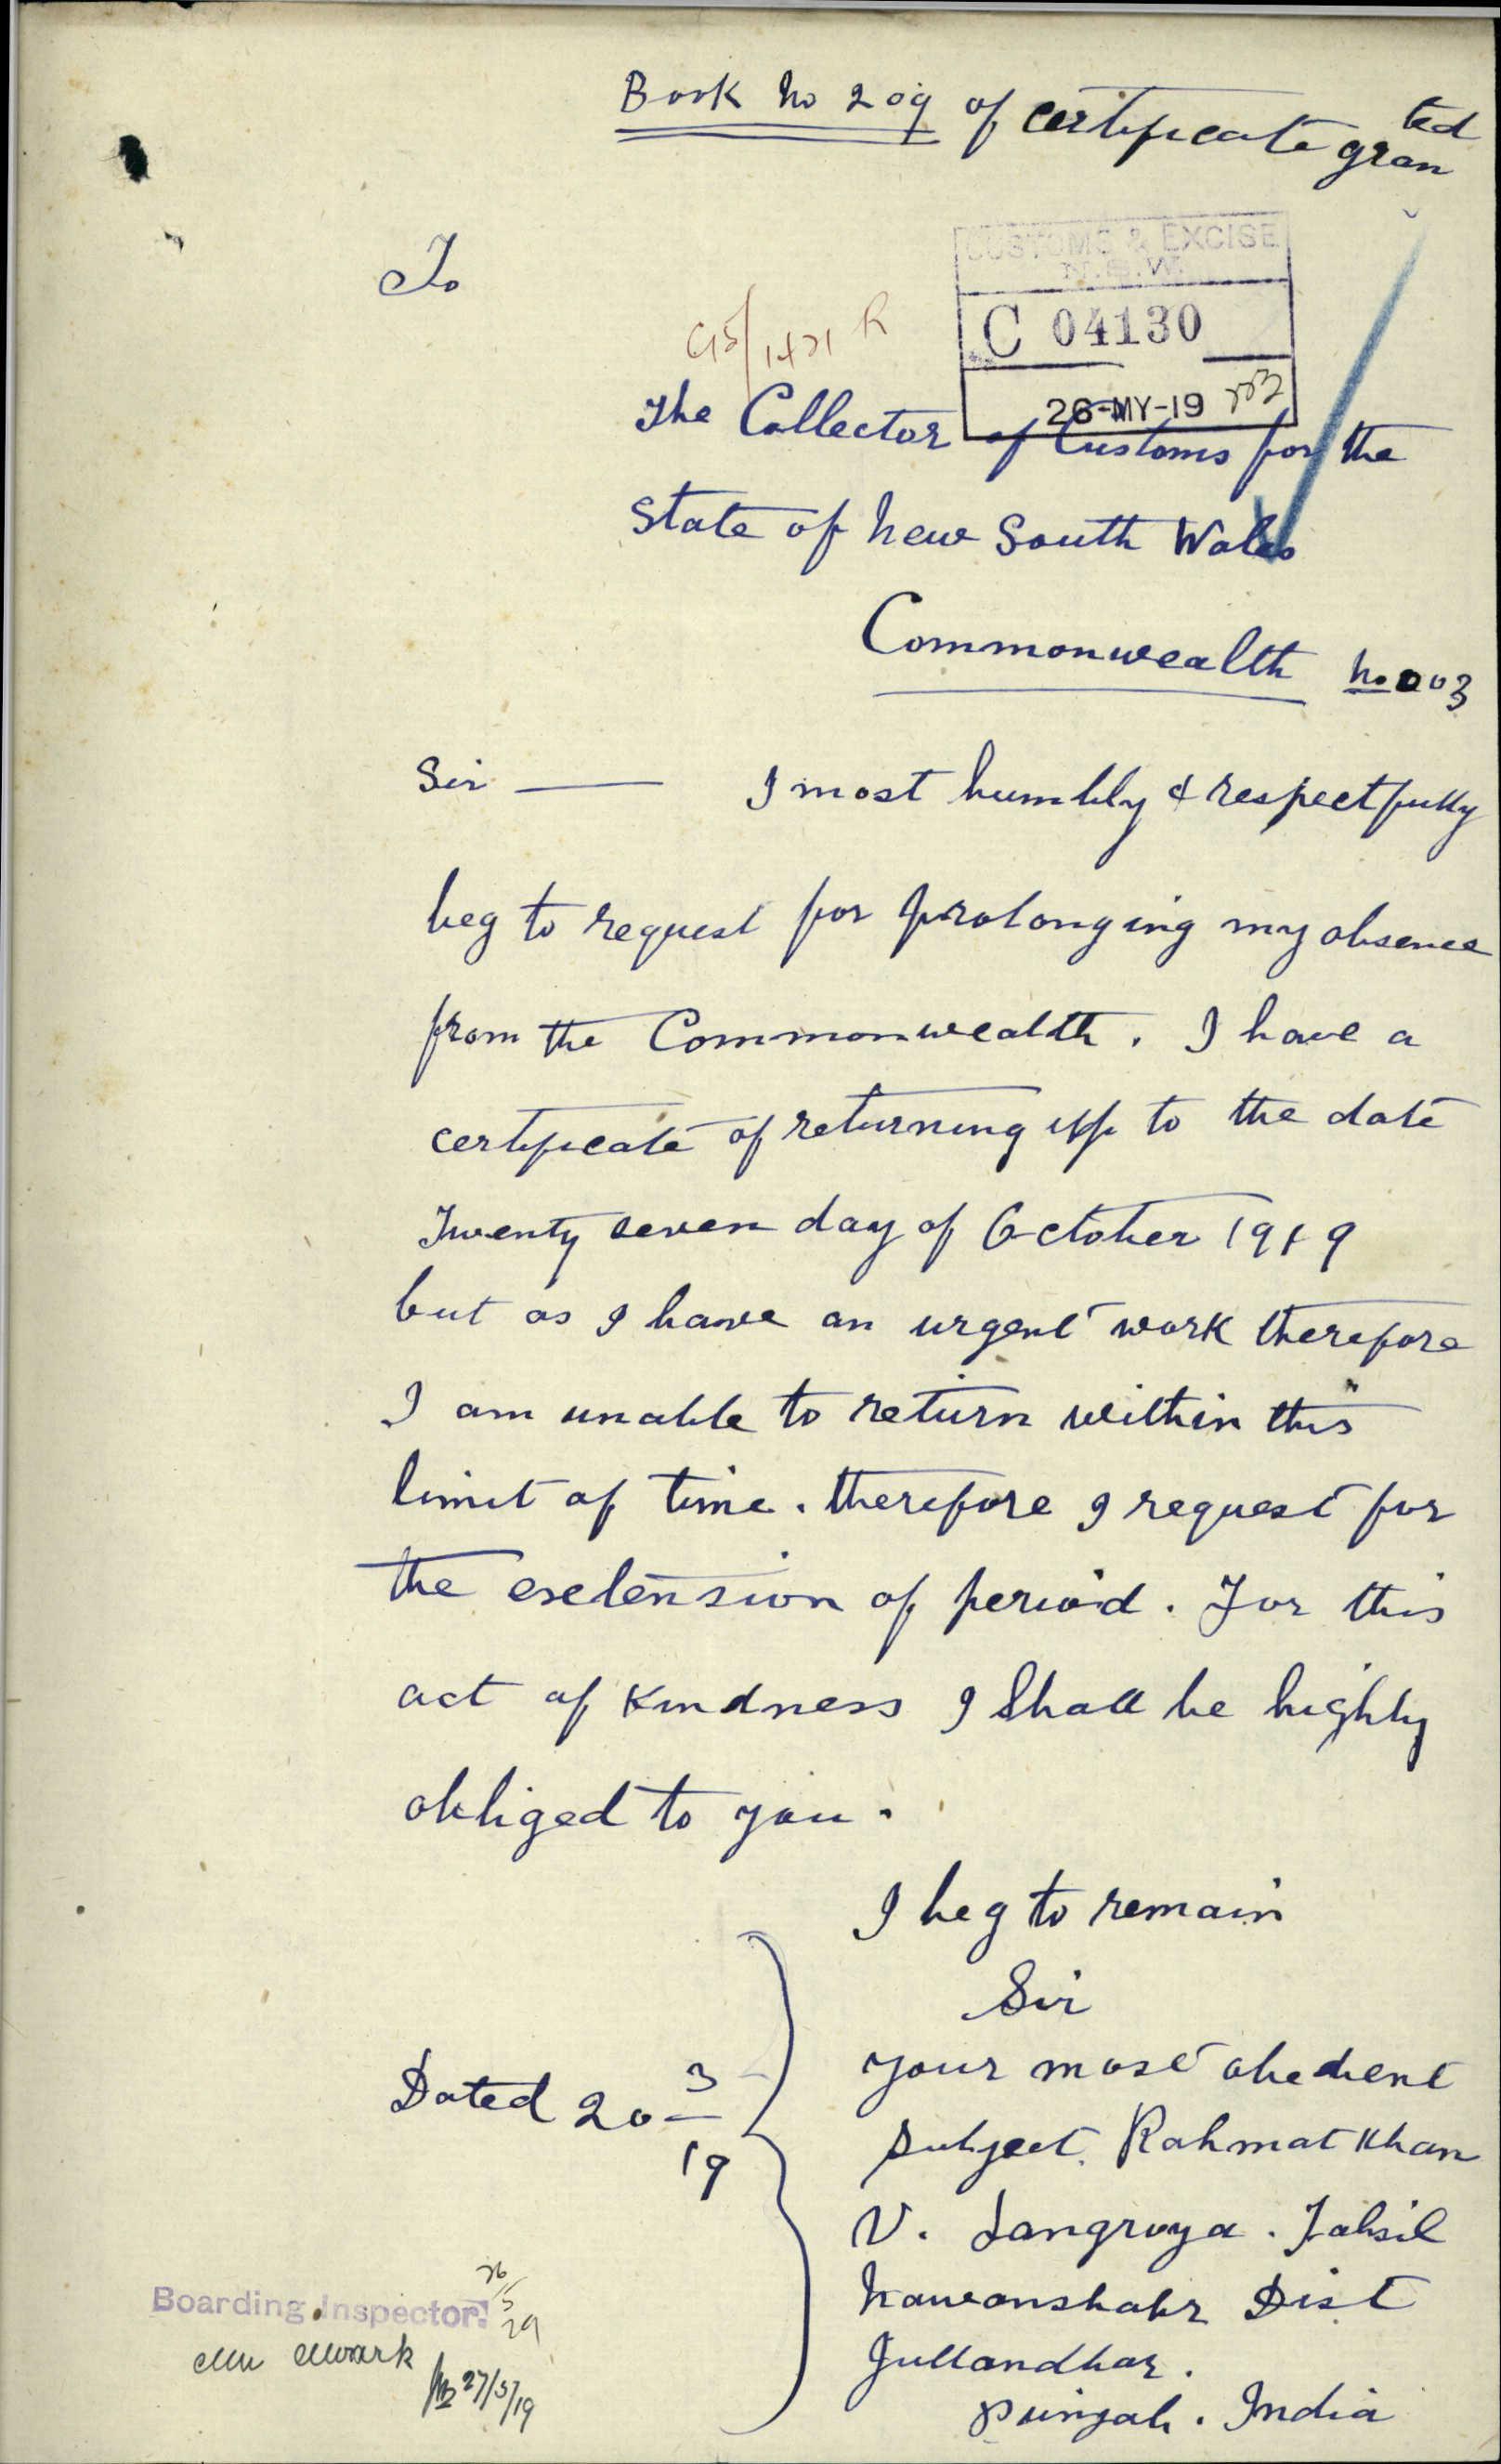 Book No 209 of certificate granted
To
CUSTOMS & EXCISE
N.S.W.
C 04130
26-MY-19
The Collector of Customs for the
State of New South Wales
Commonwealth No 003
Sir — I most humbly & respectfully
beg to request for prolonging my absence
from the Commonwealth. I have a
certificate of returning up to the date
Twenty seven day of October 1919
but as I have an urgent work therefore
I am unable to return within this
limit of time. therefore I request for
the extension of period. For this
act of kindness I shall be highly
obliged to you.
I beg to remain
Sir
Dated 20 3/19
your most obedient
subject. Rahmat Khan
V. Langroya. Tahsil
Nawanshahr Dist
Jullandhar.
Punjab. India
Boarding Inspector
27/5/19